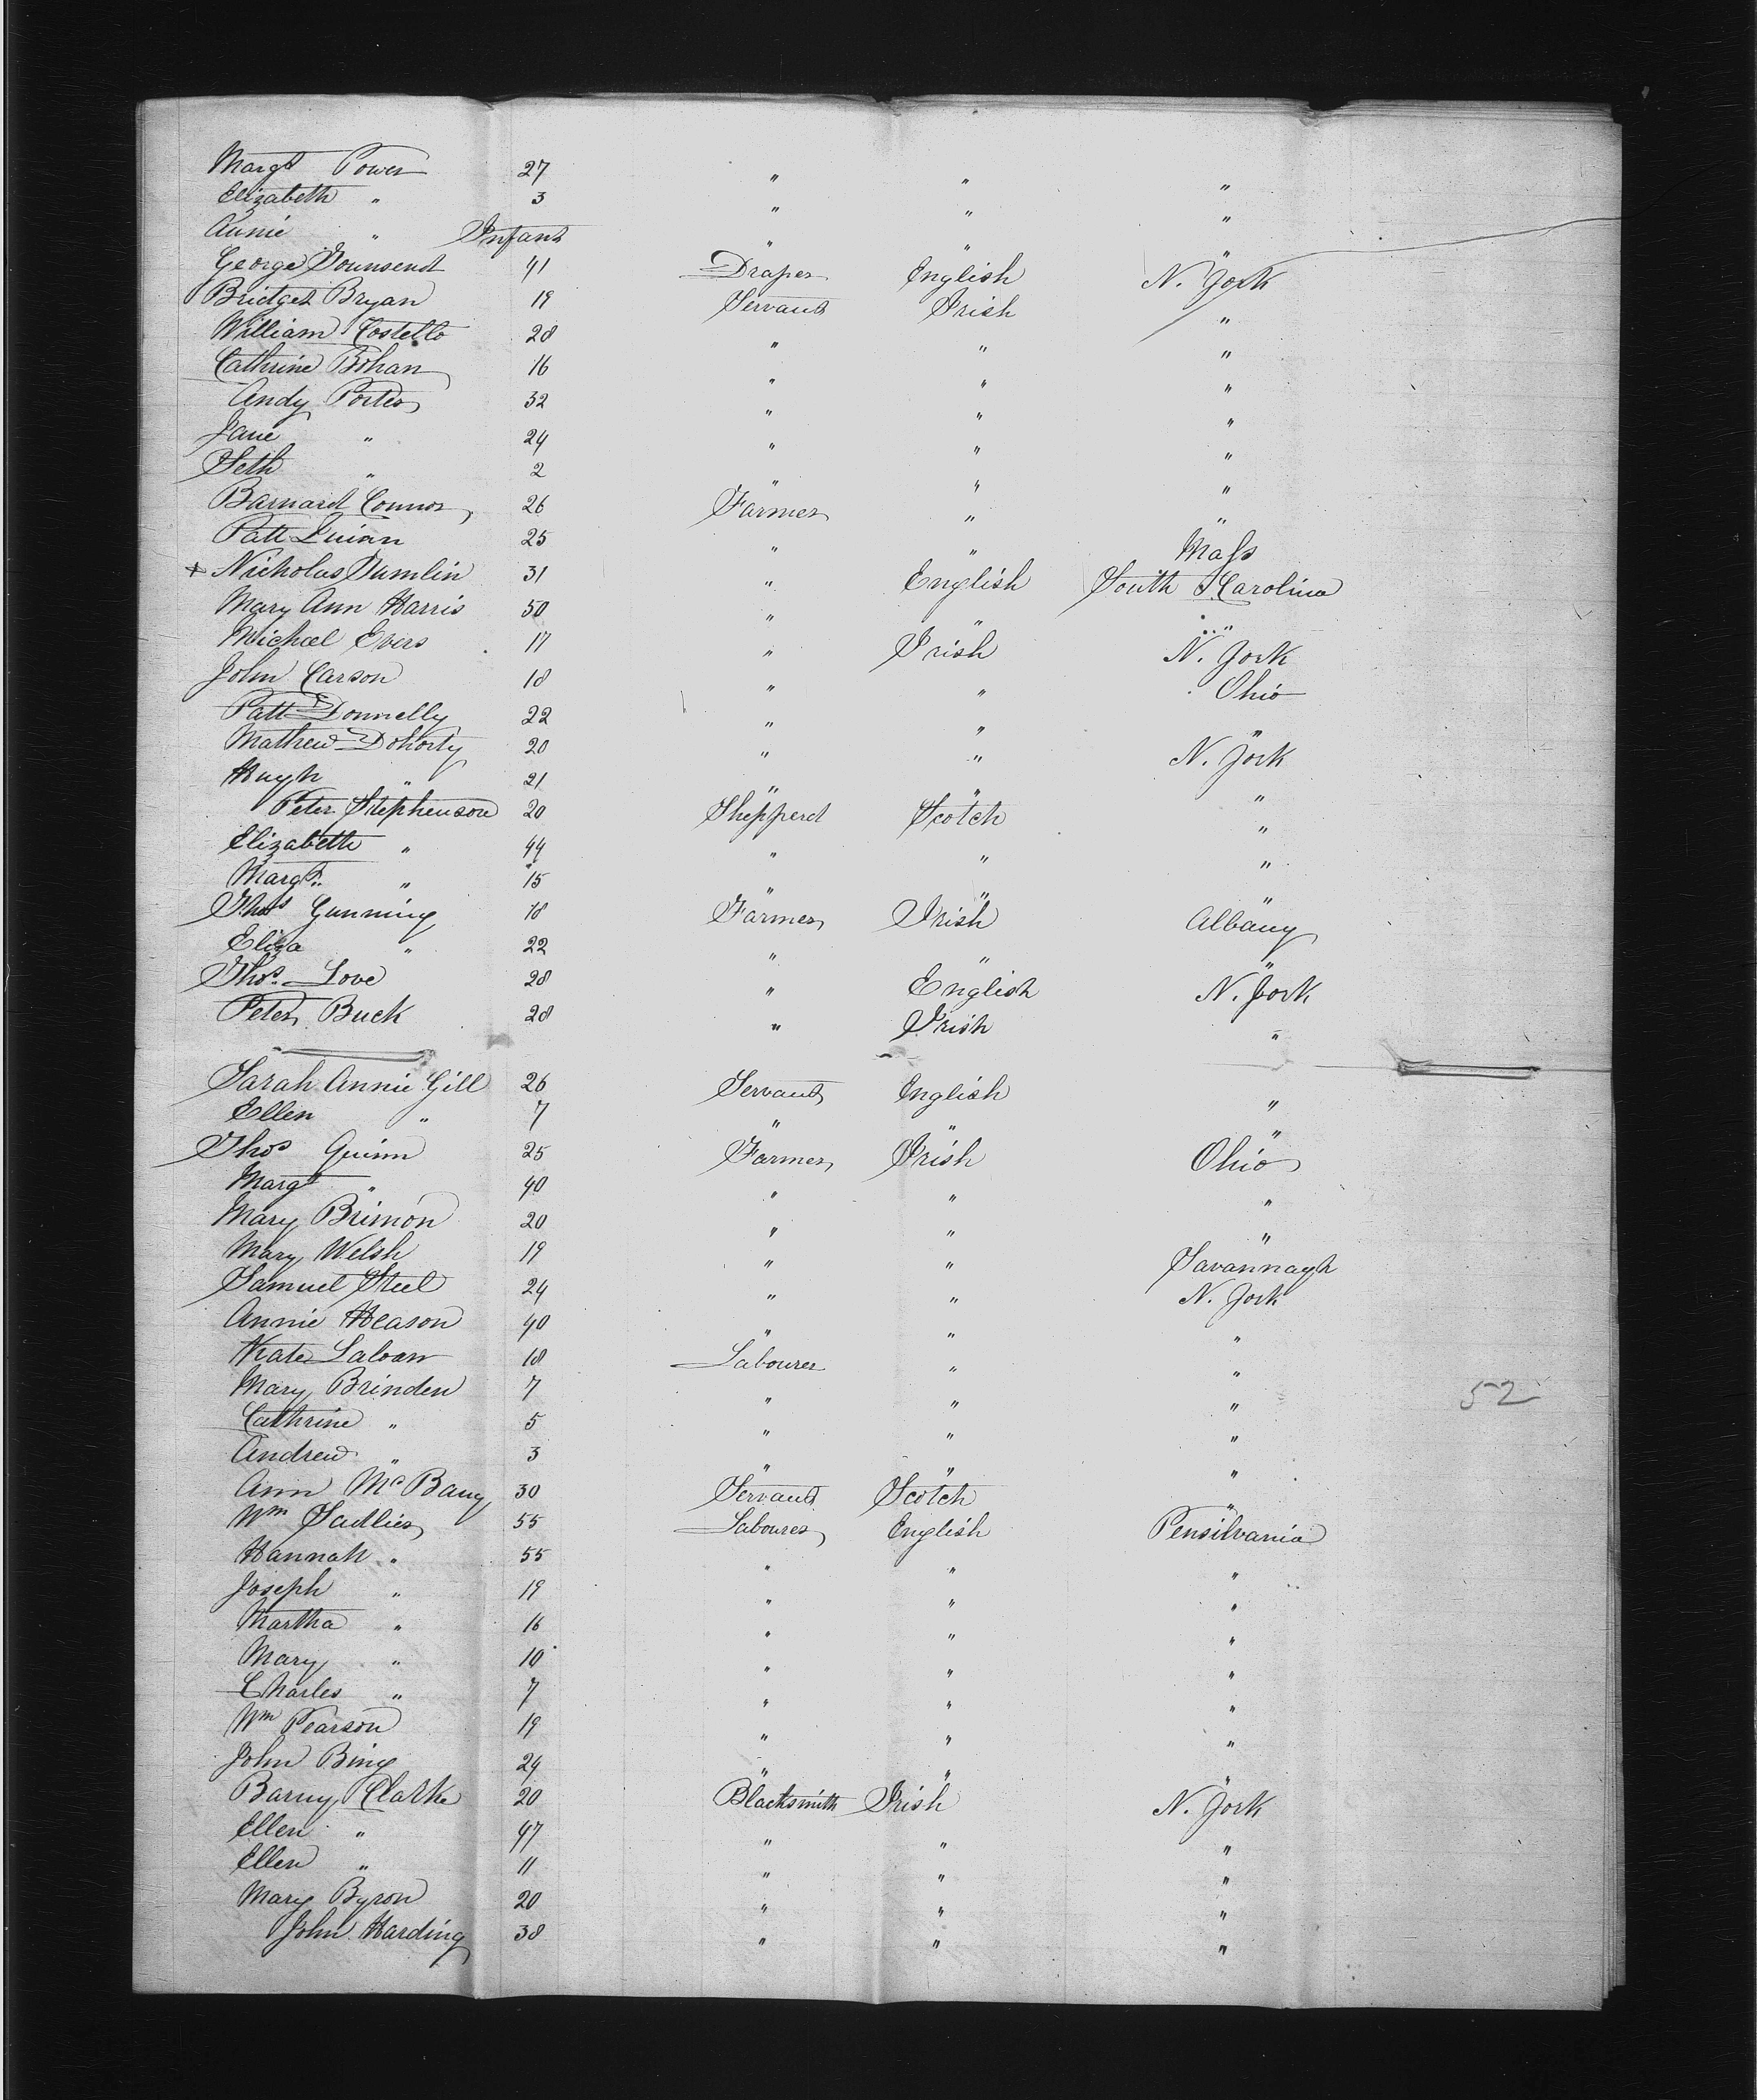 Margt Power 27 " " "
Elizabeth " 3 " " "
Annie " Infant " " "
George Tounsend 41 Draper English N. York
Bridget Bryan 19 Servant Irish "
William Costello 28 " " "
Cathrine Bohan 16 " " "
Andy Porter 32 " " "
Jane " 24 " " "
Seth " 2 " " "
Barnard Connor 26 Farmer " "
Patt Quinn 25 " " Mass
+ Nicholas Tumlin 31 " English South Carolina
Mary Ann Harris 50 " " "
Michael Evers 17 " Irish N. York
John Carson 18 " " Ohio
Patt Donnelly 22 " " "
Mathew Dohorty 20 " " N. York
Hugh " 21 " " "
Peter Stephenson 20 Shepperd Scotch "
Elizabeth " 44 " " "
Margt " 15 " " "
Thos Gunning 18 Farmer Irish Albany
Eliza " 22 " " "
Thos. Love 28 " English N. York
Peter Buck 28 " Irish "
Sarah Annie Gill 26 Servant English "
Ellen " 7 " " "
Thos Quinn 25 Farmer Irish Ohio
Margt " 40 " " "
Mary Brimon 20 " " "
Mary Welsh 19 " " Savannagh
Samuel Steel 24 " " N. York
Annie Heason 40 " " "
Kate Lavan 18 Labourer " "
Mary Brinden 7 " " " 52
Cathrine " 5 " " "
Andrew " 3 " " "
Ann Mc Bany 30 Servant Scotch "
Wm Sadlier 55 Labourer English Pensilvania
Hannah " 55 " " "
Joseph " 19 " " "
Martha " 16 " " "
Mary " 10 " " "
Charles " 7 " " "
Wm Pearson 19 " " "
John Bing 24 " " "
Barny Clarke 20 Blacksmith Irish N. York
Ellen " 47 " " "
Ellen " 11 " " "
Mary Byron 20 " " "
John Harding 38 " " "